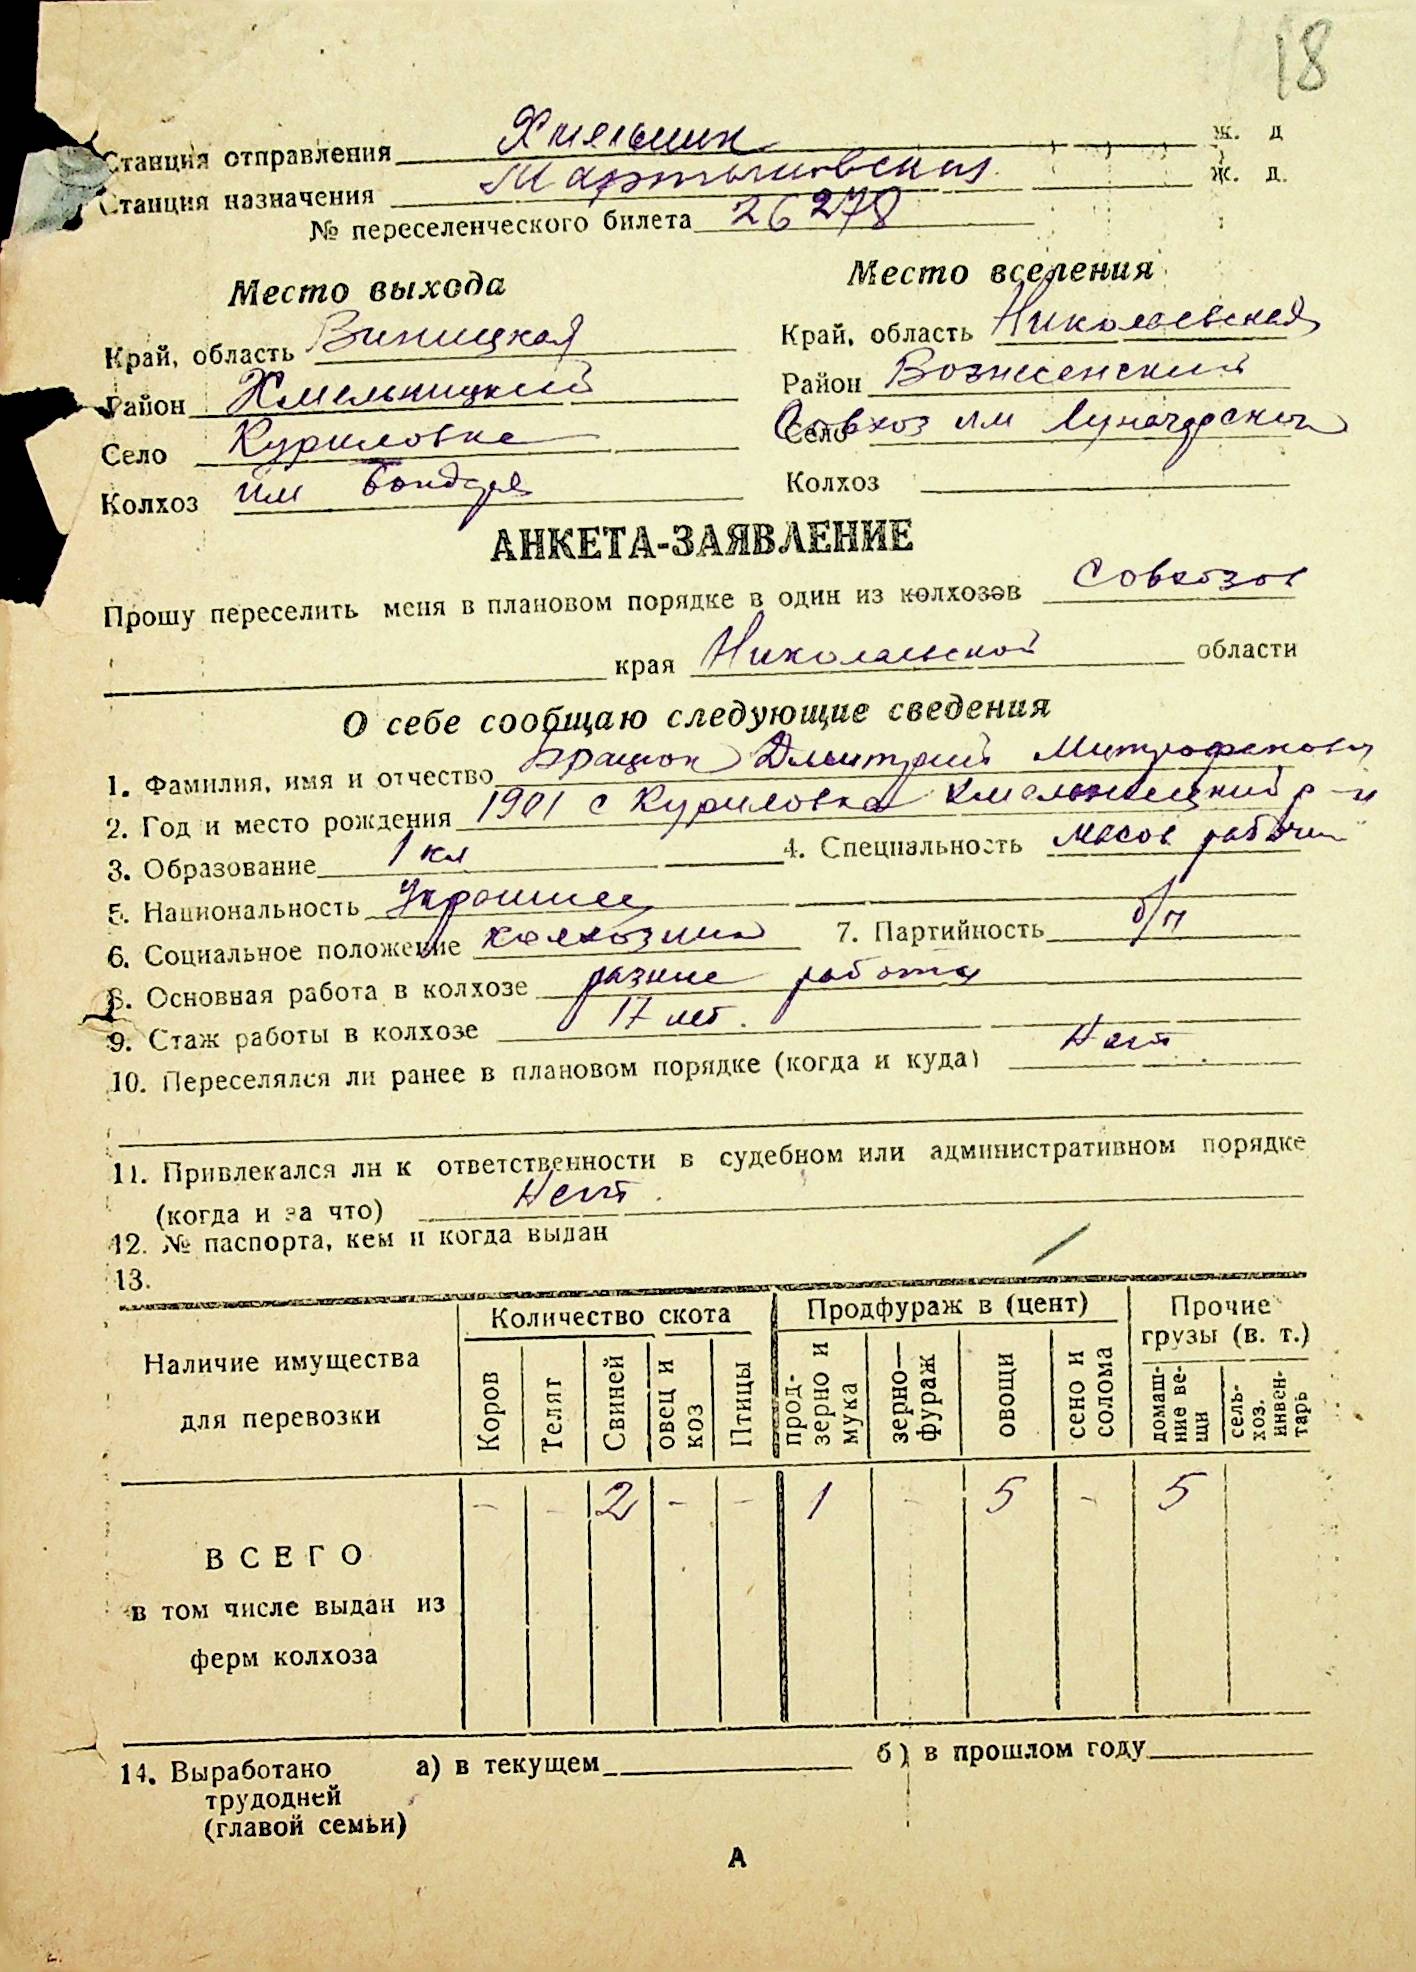 18
Станция отправления Хмельник ж. д
Станция назначения Мартыновская ж. д.
№ переселенческого билета 26278
Место выхода Место вселения
Край, область Виницкая Край, область Николаевская
Район Хмельницкий Район Вознесенский
Село Куриловка Село Совхоз им Луначарского
Колхоз им Бондаря Колхоз
АНКЕТА-ЗАЯВЛЕНИЕ
Прошу переселить меня в плановом порядке в один из колхозов совхозов
края Николаевской области
О себе сообщаю следующие сведения
1. Фамилия, имя и отчество Дмитрий Митрофанович
2. Год и место рождения 1901 с Куриловка Хмельницкий р-н
3. Образование 1 кл 4. Специальность масов рабочий
5. Национальность Украинец
6. Социальное положение колхозник 7. Партийность б/п
8. Основная работа в колхозе разние работы
9. Стаж работы в колхозе 17 лет.
10. Переселялся ли ранее в плановом порядке (когда и куда) Нет.
11. Привлекался ли к ответственности в судебном или административном порядке
(когда и за что) Нет.
12. № паспорта, кем и когда выдан
13.
Наличие имущества для перевозки Количество скота Продфураж в (цент) Прочие грузы (в. т.)
Коров Телят Свиней овец и коз Птицы прод-зерно и мука зерно—фураж овощи сено и солома домаш-ние ве-щи сель-хоз. инвен-тарь
- - 2 - - 1 - 5 - 5
ВСЕГО
в том числе выдан из
ферм колхоза
14. Выработано а) в текущем б) в прошлом году
трудодней
(главой семьи)
А